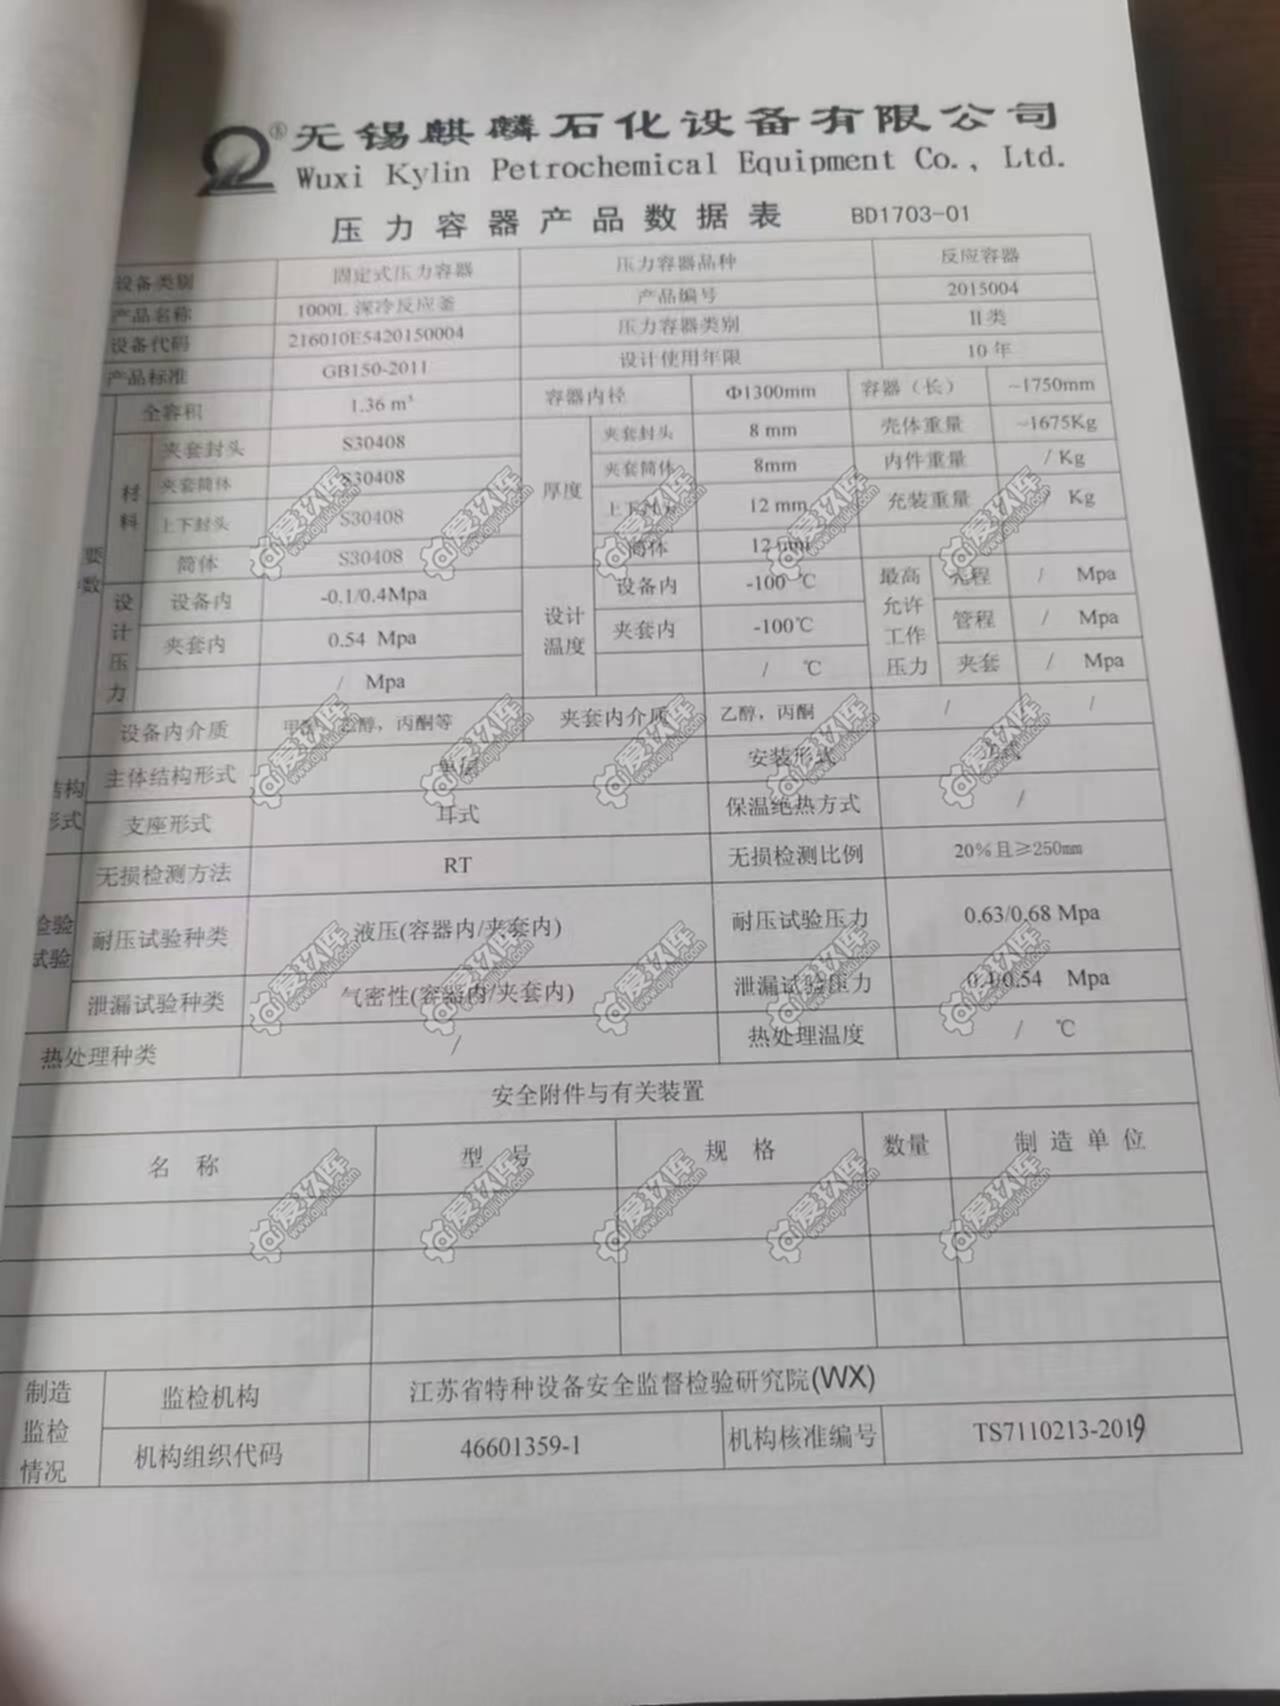 无锡麒麟石化设备有限公司
Wuxi Kylin Petrochemical Equipment Co., Ltd.
压力容器产品数据表 BD1703-01
设备类别 固定式压力容器 压力容器品种 反应容器
产品名称 1000L 深冷反应釜 产品编号 2015004
设备代码 216010E5420150004 压力容器类别 II类
产品标准 GB150-2011 设计使用年限 10年
全容积 1.36 m³ 容器内径 Φ1300mm 容器（长） ~1750mm
材料 夹套封头 S30408 厚度 夹套封头 8 mm 壳体重量 ~1675Kg
夹套筒体 S30408 夹套筒体 8mm 内件重量 / Kg
上下封头 S30408 上下封头 12 mm 充装重量 / Kg
筒体 S30408 筒体 12 mm
要
数
设计压力 设备内 -0.1/0.4Mpa 设计温度 设备内 -100 ℃ 最高允许工作压力 壳程 / Mpa
夹套内 0.54 Mpa 夹套内 -100℃ 管程 / Mpa
/ Mpa / ℃ 夹套 / Mpa
设备内介质 乙醇，丙酮等 夹套内介质 乙醇，丙酮 / /
结构形式 主体结构形式 单层 安装形式
支座形式 耳式 保温绝热方式 /
无损检测方法 RT 无损检测比例 20%且≥250mm
检验试验 耐压试验种类 液压(容器内/夹套内) 耐压试验压力 0.63/0.68 Mpa
泄漏试验种类 气密性(容器内/夹套内) 泄漏试验压力 0.4/0.54 Mpa
热处理种类 / 热处理温度 / ℃
安全附件与有关装置
名 称 型 号 规 格 数量 制 造 单 位
制造监检情况 监检机构 江苏省特种设备安全监督检验研究院(WX)
机构组织代码 46601359-1 机构核准编号 TS7110213-2019
爱玖库
www.aijiuku.com